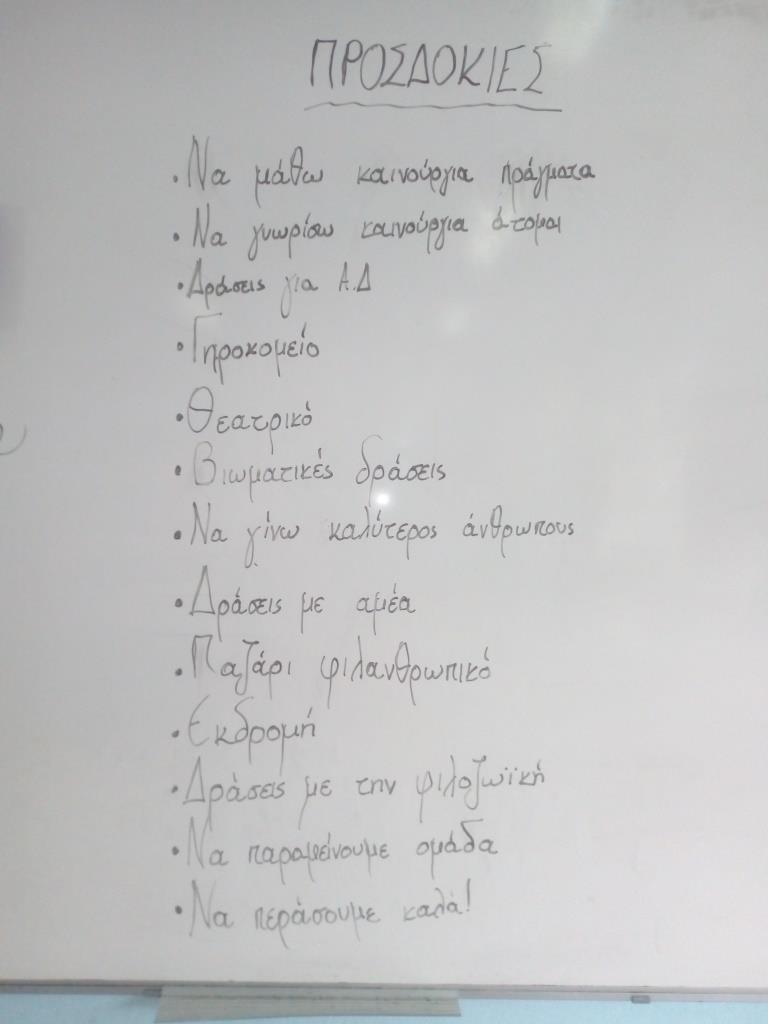 ΠΡΟΣΔΟΚΙΕΣ
• Να μάθω καινούργια πράγματα
• Να γνωρίσω καινούργια άτομα
• Δράσεις για Α.Δ
• Γηροκομείο
• Θεατρικό
• Βιωματικές δράσεις
• Να γίνω καλύτερος άνθρωπους
• Δράσεις με αμέα
• Παζάρι φιλανθρωπικό
• Εκδρομή
• Δράσεις με την φιλοζωϊκή
• Να παραμείνουμε ομάδα
• Να περάσουμε καλά!